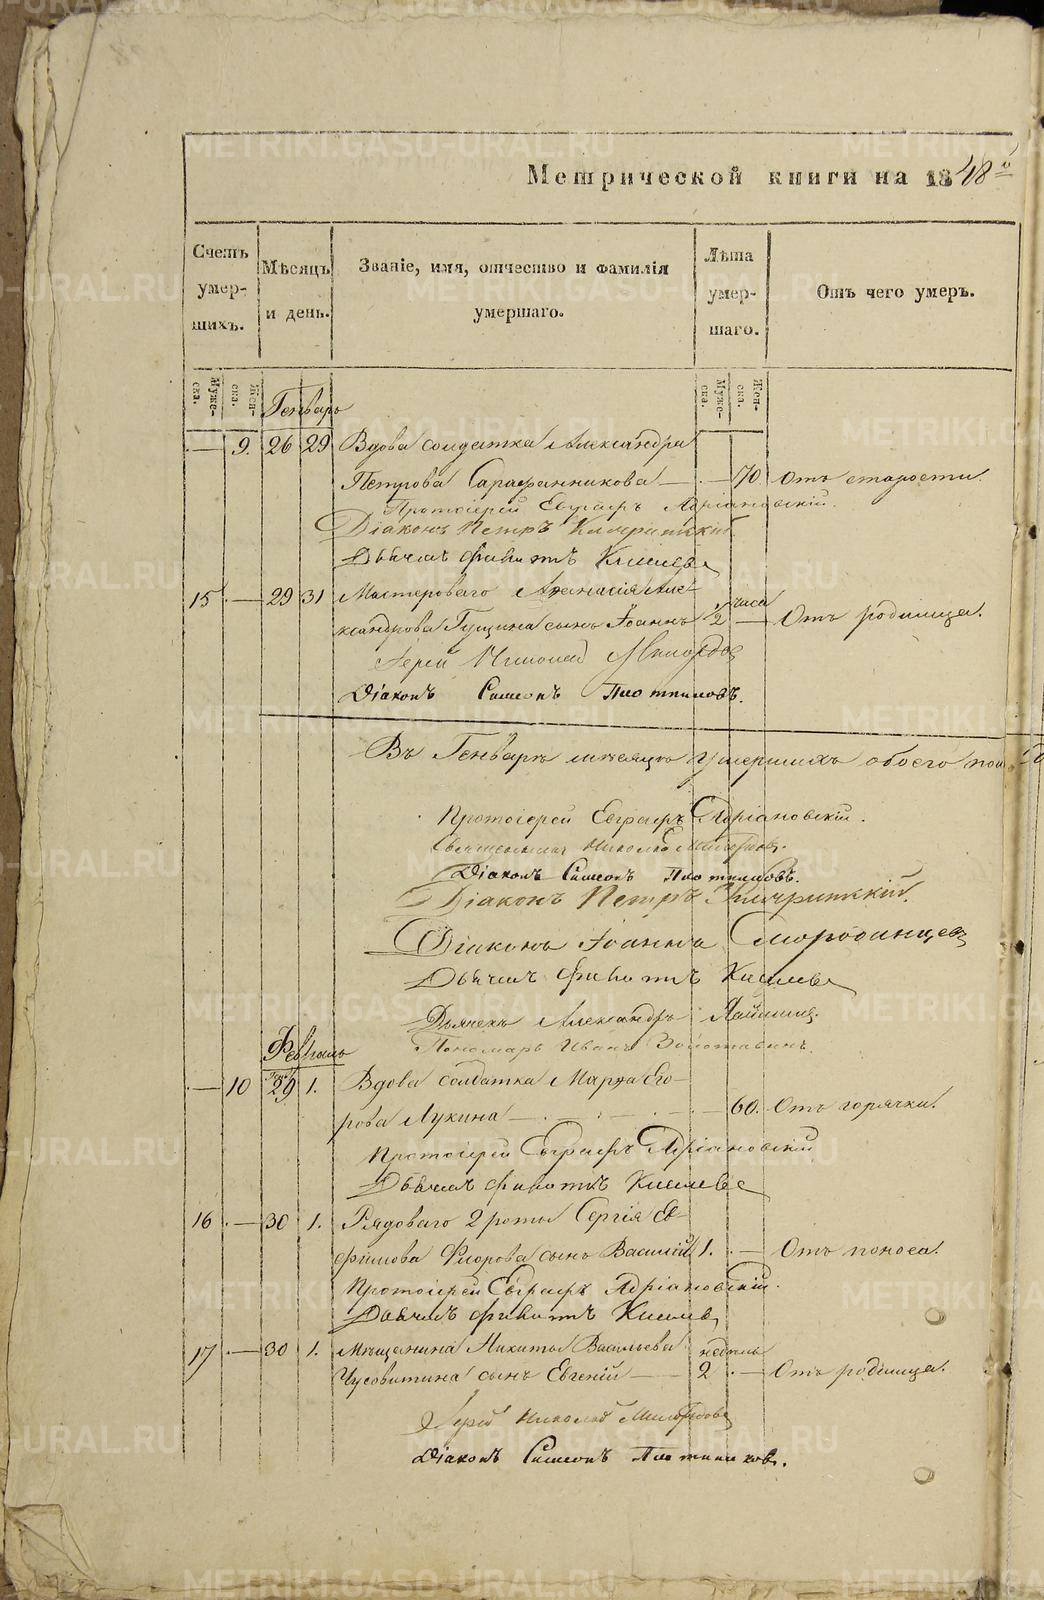 Метрической книги на 1848 й
Счетъ умер-шихъ.
Мѣсяцъ и день.
Званіе, имя, отчество и фамилія умершаго.
Лѣта умер-шаго.
Отъ чего умеръ.
Муже-ска.
Жен-ска.
Муже-ска.
Жен-ска.
Генварь
— 9. 26 29 Вдова солдатка Александра
Петрова Сарафанникова — 70 Отъ старости.
Протоіерей Евграфъ Адріановскій.
Діаконъ Петръ
Дьячекъ Филиттъ Киселевъ
15 — 29 31 Мастероваго Аѳанасія Алек-
сандрова Гущина сынъ Іоаннъ 2 часа — Отъ родимца.
Іерей Николай Милордовъ
Діаконъ Симеонъ Плотниковъ.
Въ Генварѣ мѣсяцѣ умершихъ обоего пола
Протоіерей Евграфъ Адріановскій.
Священникъ Николай Милордовъ.
Діаконъ Симеонъ Плотниковъ.
Діаконъ Петръ
Діаконъ Іоаннъ Смородинцевъ
Дьячекъ Филиттъ Киселевъ
Дьячекъ Александръ
Пономарь Иванъ Золотавинъ.
Февраль
— 10 Генв. 29 1. Вдова солдатка Марѳа Его-
рова Лукина — 60. Отъ горячки.
Протоіерей Евграфъ Адріановскій
Дьячекъ Филиттъ Киселевъ
16 — 30 1. Рядоваго 2 роты Сергія Ев-
фимова Флорова сынъ Василій 1. — Отъ поноса.
Протоіерей Евграфъ Адріановскій.
Дьячекъ Филиттъ Киселевъ
17 — 30 1. Мѣщанина Никиты Васильева недѣль
Чусовитина сынъ Евгеній — 2 — Отъ родимца.
Іерей Николай Милордовъ
Діаконъ Симеонъ Плотниковъ.
METRIKI.GASO-URAL.RU